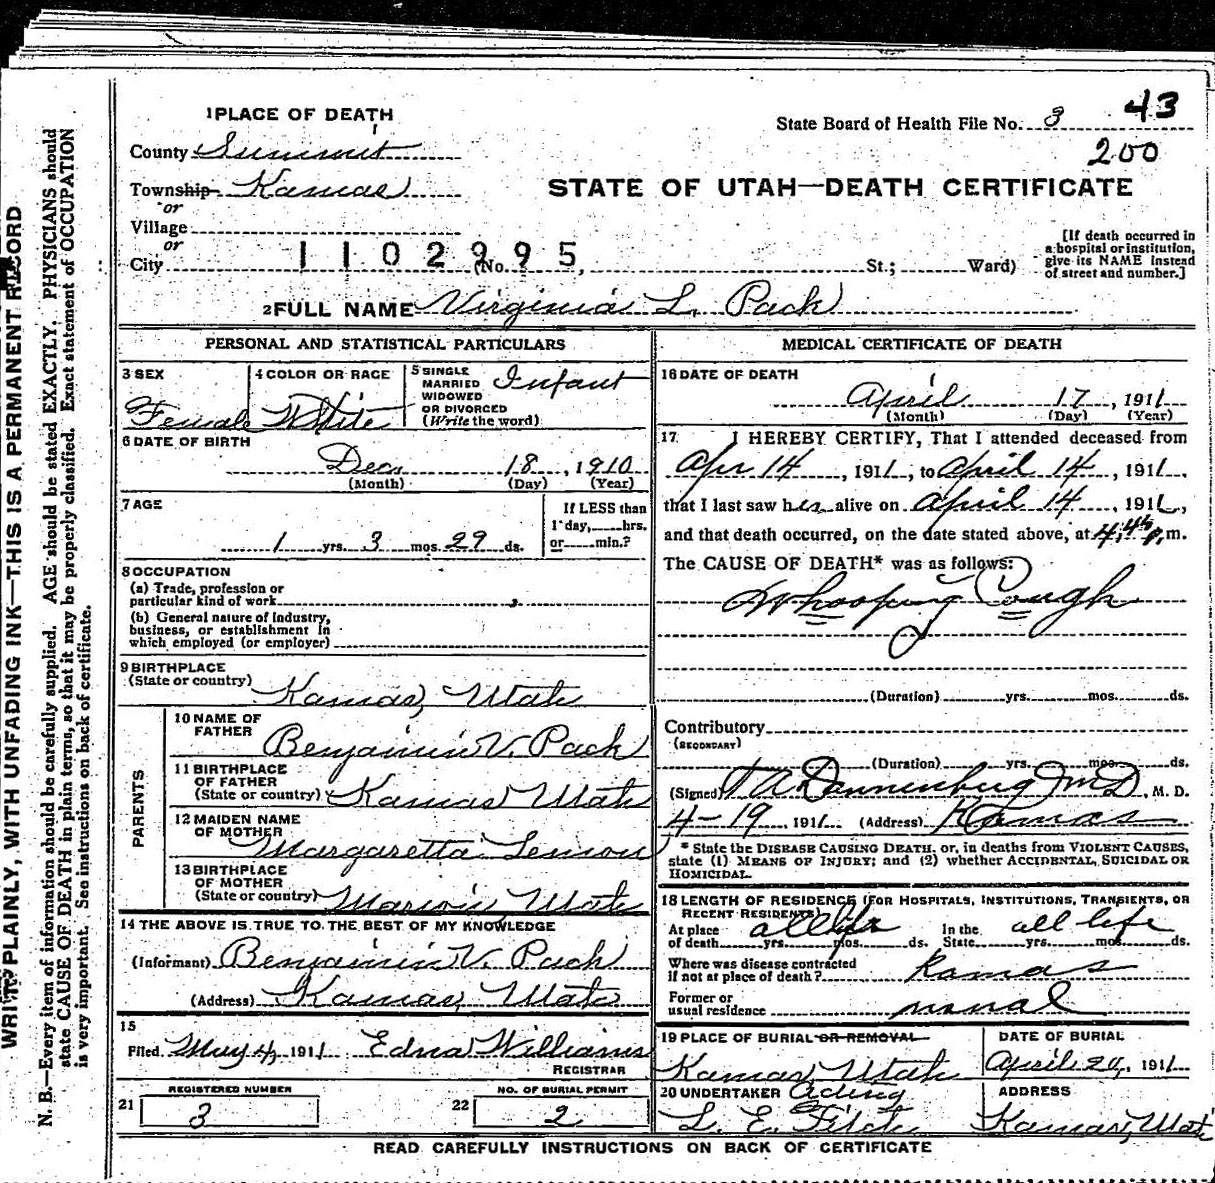 1 PLACE OF DEATH
County Summit
Township Kamas
or
Village
or
City 1102995 (No. St.; Ward)
State Board of Health File No. 3 43
200
STATE OF UTAH—DEATH CERTIFICATE
[If death occurred in a hospital or institution, give its NAME instead of street and number.]
2 FULL NAME Virginia L. Pack
PERSONAL AND STATISTICAL PARTICULARS
3 SEX
Female
4 COLOR OR RACE
White
5 SINGLE MARRIED WIDOWED OR DIVORCED (Write the word) Infant
6 DATE OF BIRTH
Dec 18, 1910
(Month) (Day) (Year)
7 AGE
1 yrs. 3 mos. 29 ds.
If LESS than 1 day, hrs. or min.?
8 OCCUPATION
(a) Trade, profession or
particular kind of work
(b) General nature of industry,
business, or establishment in
which employed (or employer)
9 BIRTHPLACE
(State or country) Kamas, Utah
PARENTS
10 NAME OF FATHER
Benjamin V. Pack
11 BIRTHPLACE OF FATHER
(State or country) Kamas Utah
12 MAIDEN NAME OF MOTHER
Margaretta Lemon
13 BIRTHPLACE OF MOTHER
(State or country) Marion Utah
14 THE ABOVE IS TRUE TO THE BEST OF MY KNOWLEDGE
(Informant) Benjamin V. Pack
(Address) Kamas, Utah
15
Filed May 4, 1911 Edna Williams
REGISTRAR
REGISTERED NUMBER
21 3
NO. OF BURIAL PERMIT
22 2
MEDICAL CERTIFICATE OF DEATH
16 DATE OF DEATH
April 17, 1911
(Month) (Day) (Year)
17 I HEREBY CERTIFY, That I attended deceased from
Apr 14, 1911, to April 14, 1911,
that I last saw her alive on April 14, 1911,
and that death occurred, on the date stated above, at 4:45 p,m.
The CAUSE OF DEATH* was as follows:
Whooping Cough
(Duration) yrs. mos. ds.
Contributory
(SECONDARY)
(Duration) yrs. mos. ds.
(Signed) Dannenburg MD, M. D.
4-19, 1911 (Address) Kamas
* State the DISEASE CAUSING DEATH, or, in deaths from VIOLENT CAUSES,
state (1) MEANS OF INJURY; and (2) whether ACCIDENTAL, SUICIDAL OR
HOMICIDAL.
18 LENGTH OF RESIDENCE (FOR HOSPITALS, INSTITUTIONS, TRANSIENTS, OR
RECENT RESIDENTS)
At place of death all life yrs. mos. ds. In the State all life yrs. mos. ds.
Where was disease contracted
if not at place of death? Kamas
Former or
usual residence
19 PLACE OF BURIAL OR REMOVAL
Kamas, Utah
DATE OF BURIAL
April 20, 1911
20 UNDERTAKER Acting
L. E.
ADDRESS
Kamas, Utah
READ CAREFULLY INSTRUCTIONS ON BACK OF CERTIFICATE
WRITE PLAINLY, WITH UNFADING INK—THIS IS A PERMANENT RECORD
N. B.—Every item of information should be carefully supplied. AGE should be stated EXACTLY. PHYSICIANS should
state CAUSE OF DEATH in plain terms, so that it may be properly classified. Exact statement of OCCUPATION
is very important. See instructions on back of certificate.